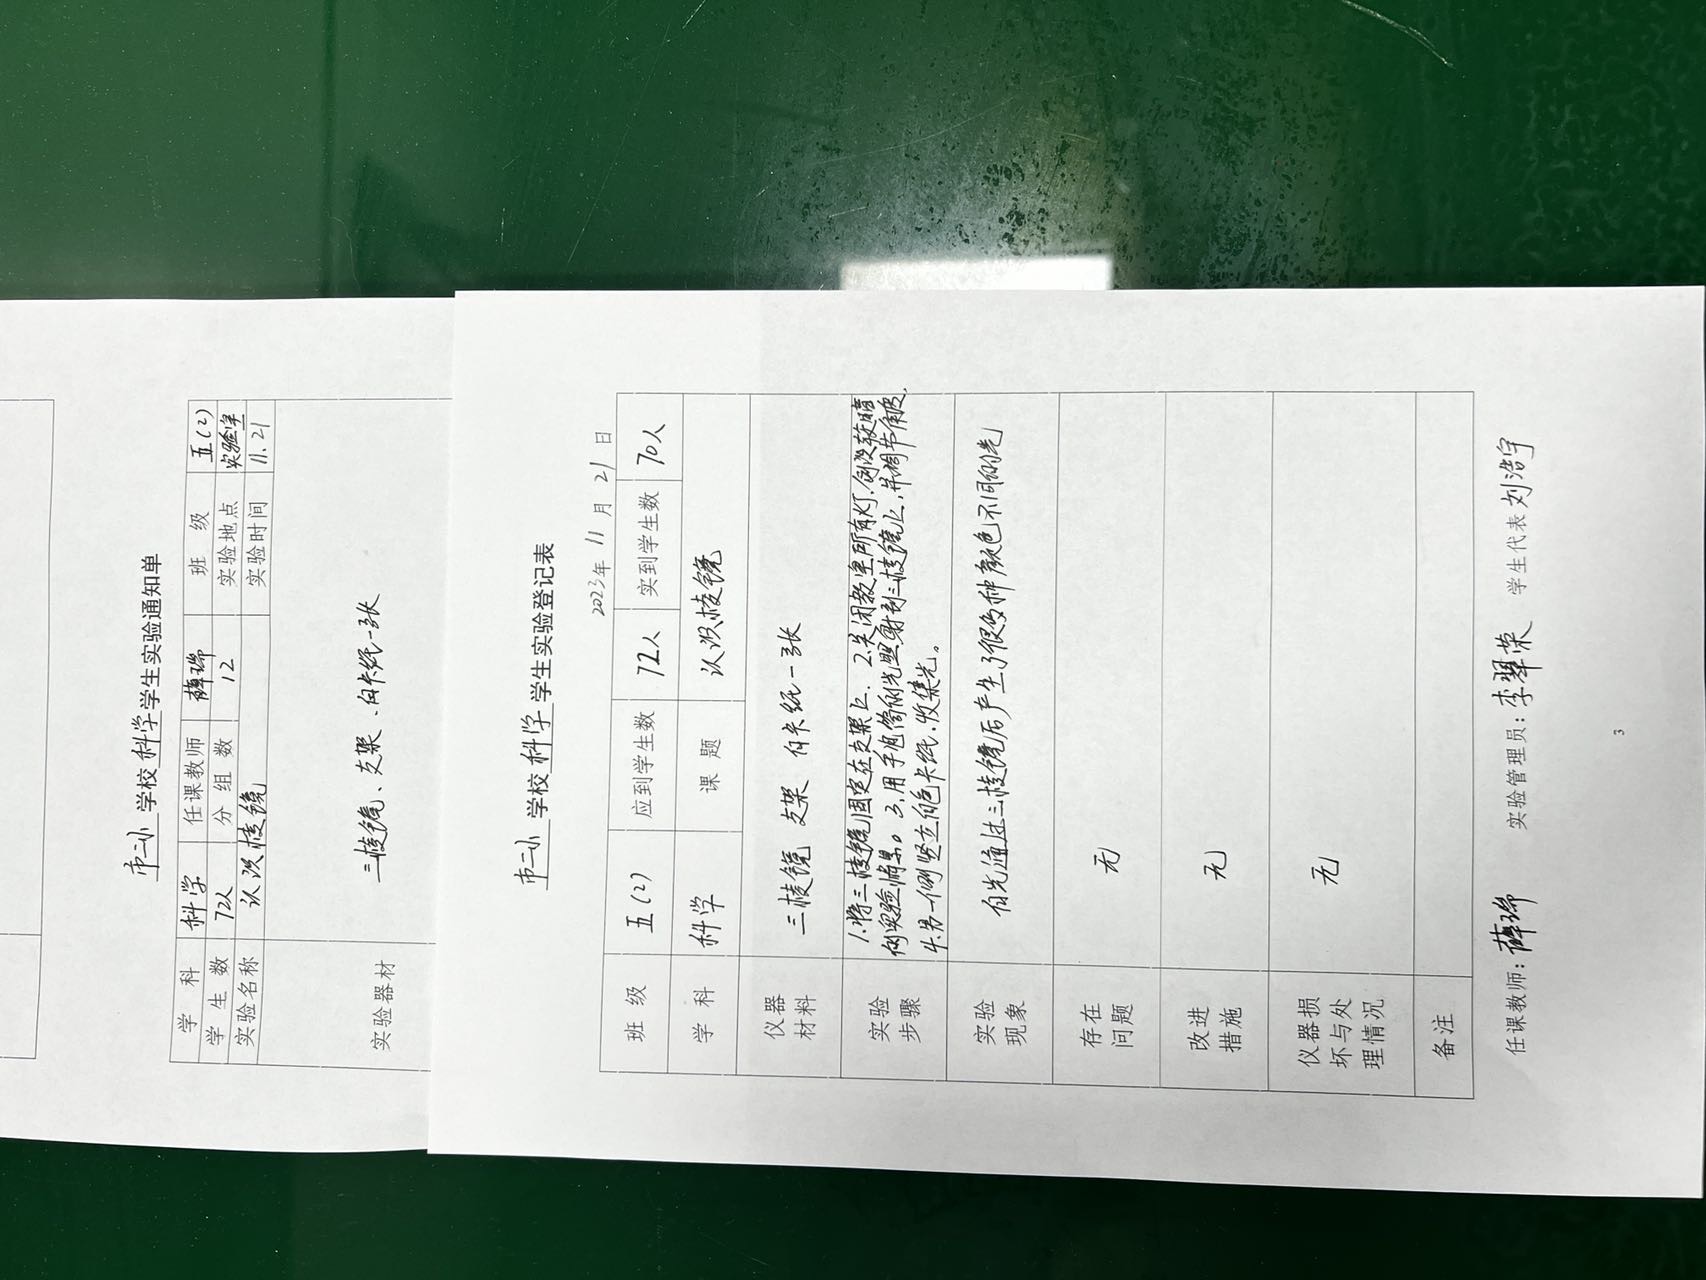 市二小学校科学学生实验通知单
学 科 科学 任课教师 薛瑞 班 级 五(2)
学 生 数 72人 分 组 数 12 实验地点 实验室
实验名称 认识棱镜 实验时间 11.21
实验器材 三棱镜、支架、白卡纸一张
市二小学校科学学生实验登记表
2023年11月21日
班 级 五(2) 应到学生数 72人 实到学生数 70人
学 科 科学 课 题 认识棱镜
仪器
材料
三棱镜 支架 白卡纸一张
实验
步骤
1.将三棱镜固定在支架上. 2.关闭教室所有灯,创设较暗
的实验情景。3.用手电筒的光照射到三棱镜上,并调节角度.
4.另一侧竖立白色卡纸,收集光。
实验
现象
白光通过三棱镜后产生了很多种颜色不同的光
存在
问题
无
改进
措施
无
仪器损
坏与处
理情况
无
备注
任课教师:薛瑞 实验管理员:李翠荣 学生代表 刘浩宇
3